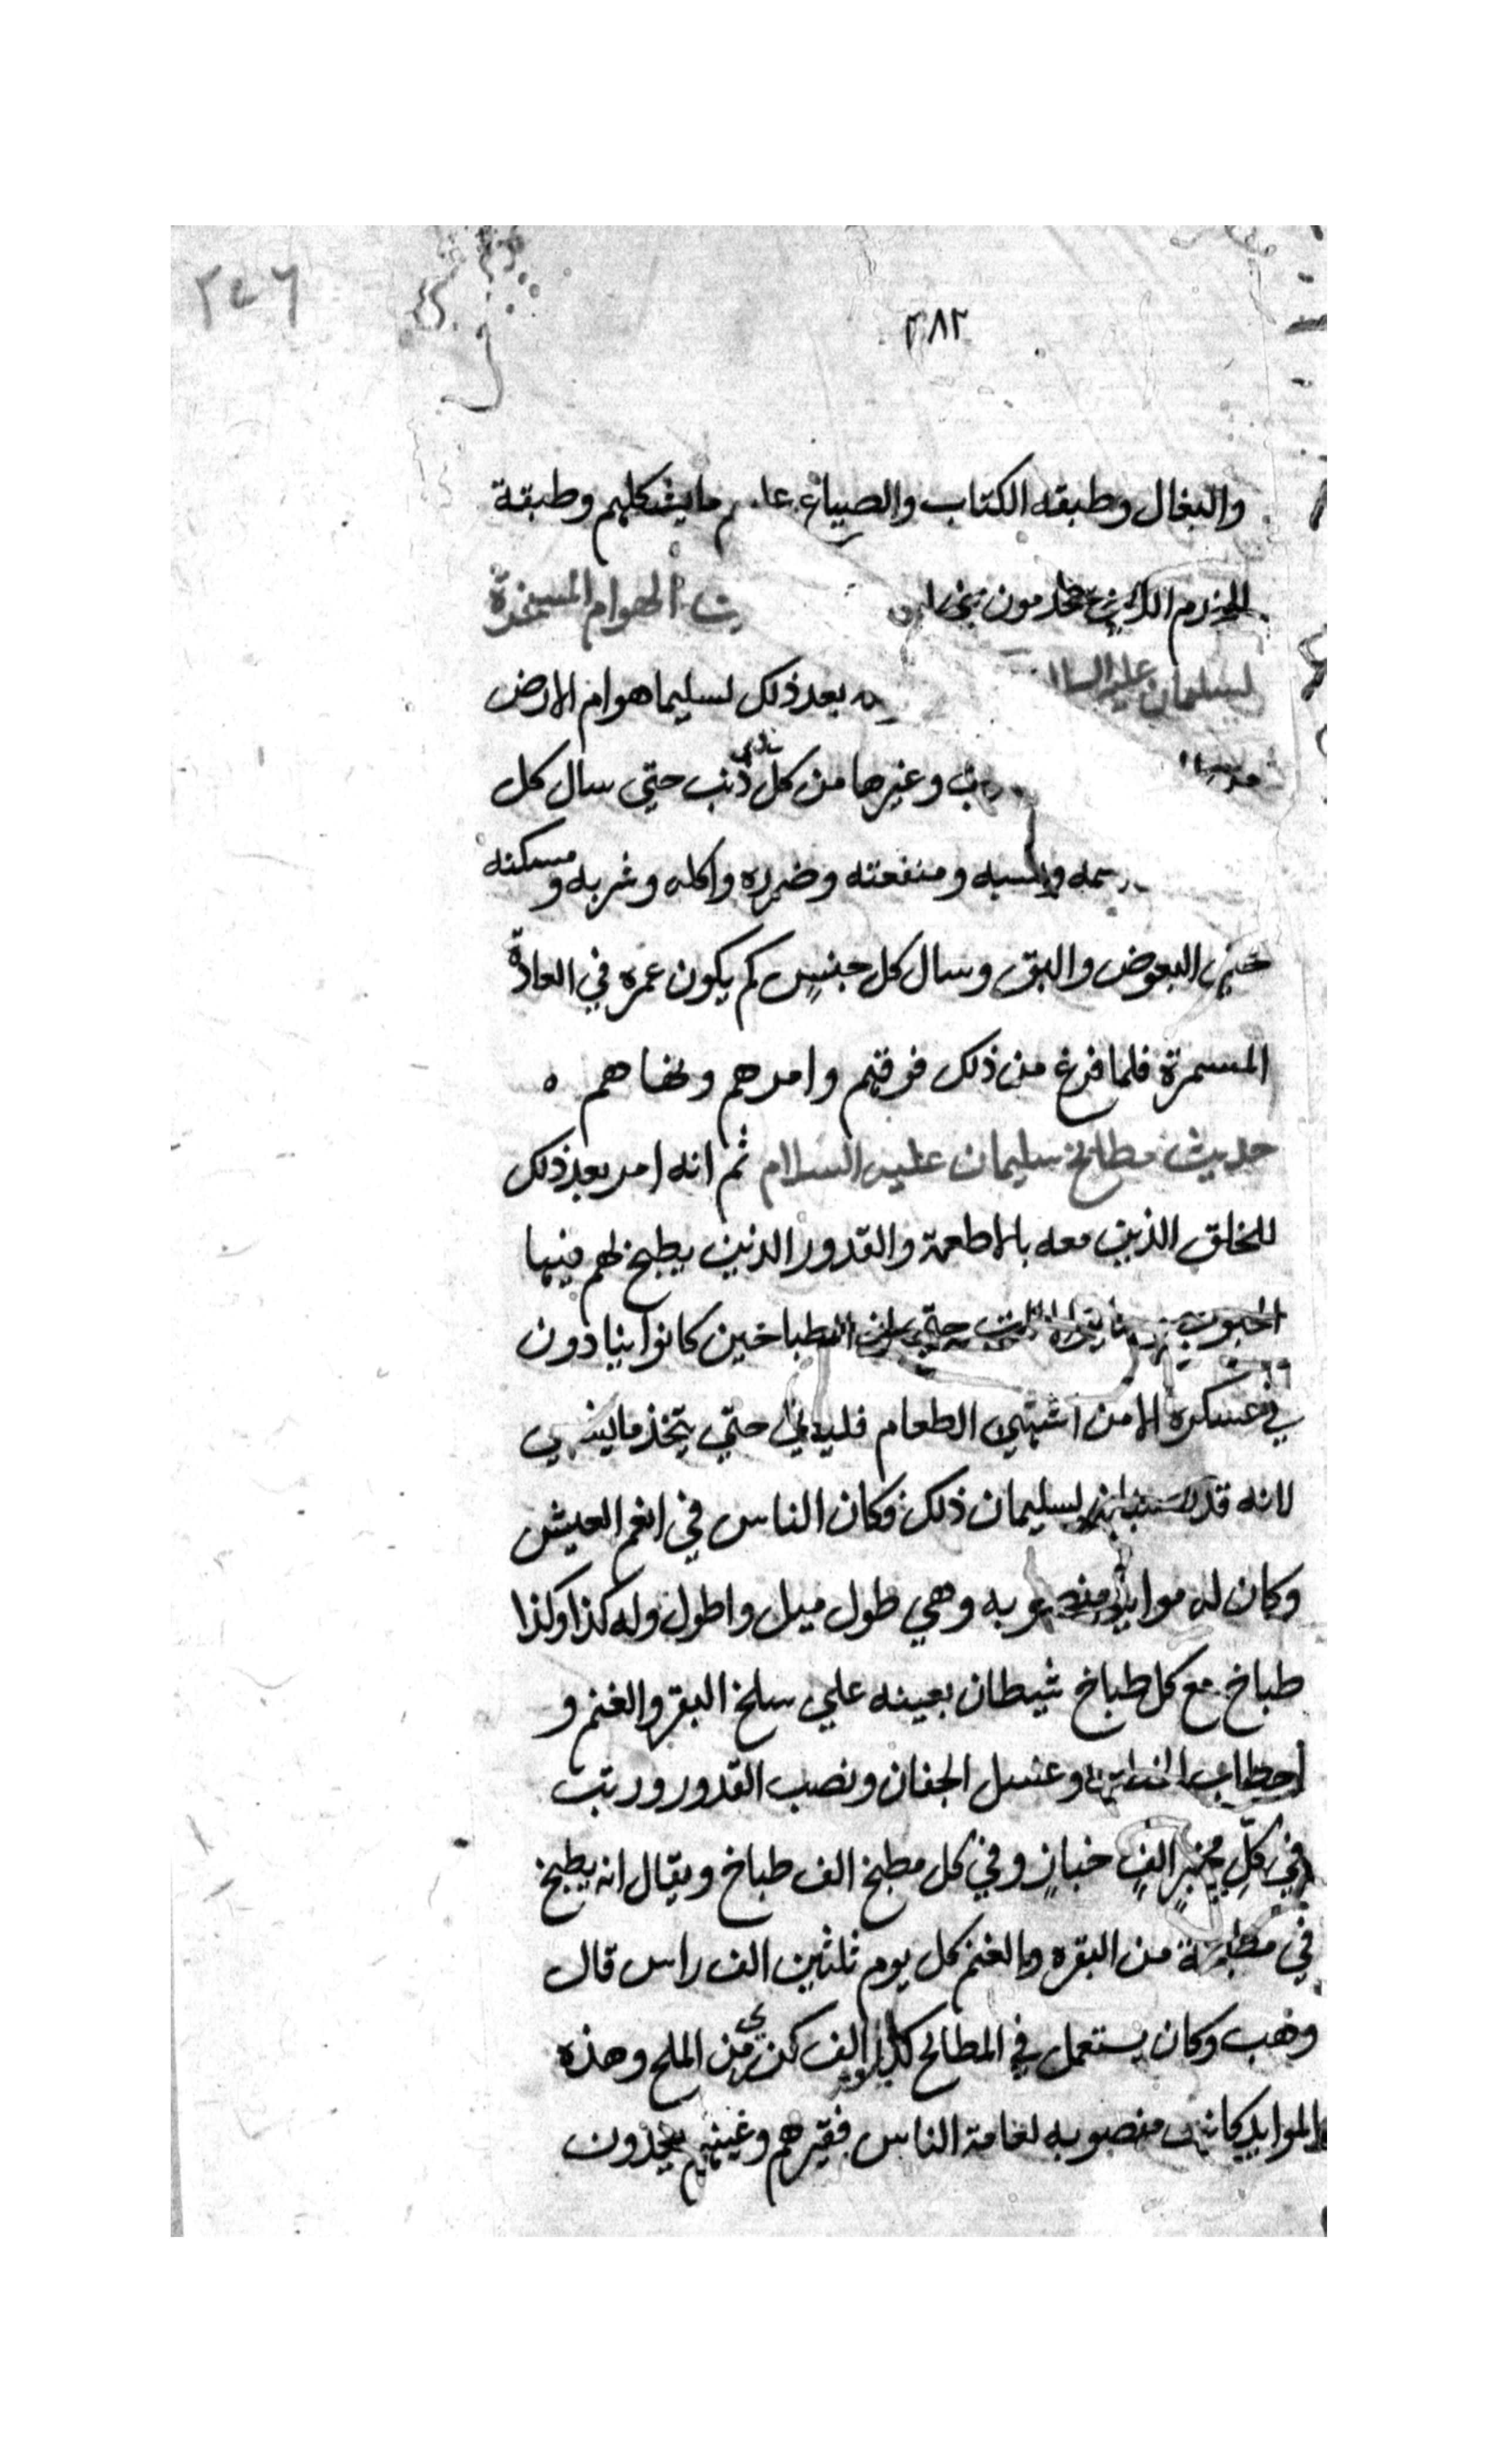 ٢٤٦
٢٨٢
والبغال وطبقه الكتاب والصياغ ما يشكلهم وطبقة
الخدم الذين يخدمون الهوام المسخرة
لسليمان عليه السلا بعد ذلك لسليما هوام الارض
وغيرها من كل ذنب حتى سال كل
ومنفعته وضرره واكله وشربه ومسكنه
حتى البعوض والبق وسال كل جنسٍ كم يكون عمره في العادة
المستمرة فلما فرغ من ذلك فرقهم وامرهم ونهاهم ه
حديث مطابخ سليمان عليه السلام ثم انه امر بعد ذلك
للخلق الذين معه بالاطعمة والقدور الذين يطبخ لهم فيها
حتى الطباخين كانوا ينادون
في عسكره الا من اشتهي الطعام فلياتي حتي يتخذ ما يشتهي
لانه قد لسليمان ذلك فكان الناس في انعم العيش
وكان له موايد منصوبه وهي طول ميل واطول وله كذا وكذا
طباخ مع كل طباخ شيطان يعينه علي سلخ البقر والغنم و
احطاب وغسل الجفان ونصب القدور ورتب
في كلِّ مخبزٍ الفٍ خبازٍ وفي كل مطبخ الف طباخ ويقال انه يطبخ
في من البقره والغنم كل يوم ثلثين الف راس قال
وهب وكان يستعمل في المطابخ الف من الملح وهذه
الموايد كانت منصوبه لعامة الناس فقيرهم وغنيهم يجدون